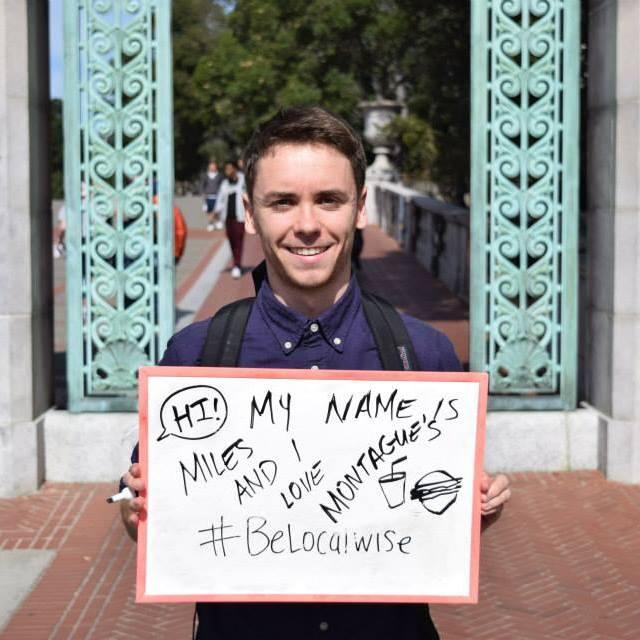 HI! MY NAME IS
MILES AND I LOVE MONTAGUE'S
#BeLocalwise